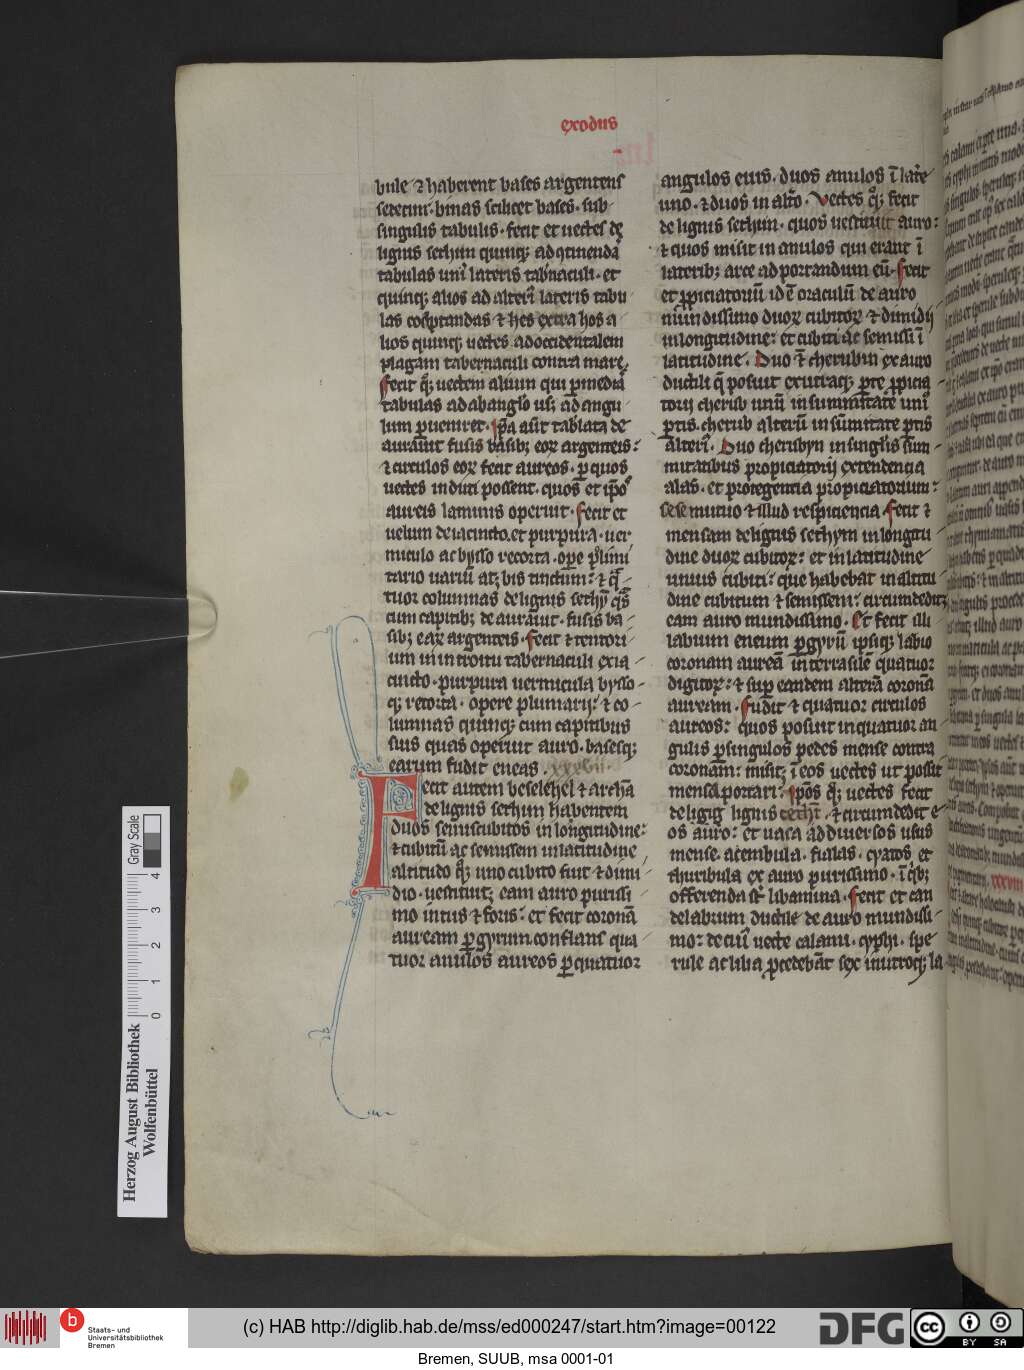 exodus
bule ⁊ haberent bases argenteas
sedecim· binas scilicet bases· sub
singulis tabulis· fecit et uectes de
lignis sethim quinq; ad ɔtinenda
tabulas uni' lateris tab'naculi· et
quinq; alios ad alteri' lateris tabu
las coaptandas ⁊ hos extra hos a
lios quinq; uectes ad occidentalem
plagam tabernaculi contra mare.
fecit q̨; uectem alium qui p mediā
tabulas ab angulo us; ad angu
lum pueniret· Ip̄a aūt tablata de
aurauit fusis basib; eoꝝ argenteis:
⁊ circulos eoꝝ fecit aureos· p quos
uectes induci possent· quos et ip̄o'
aureis laminis operuit· fecit et
uelum de iacincto. et purpura· uer
miculo ac bysso retorta· ope p̄lumi
tario uariū atq; distinctum: ⁊ q̄
tuor columnas de lignis sethȳ q̄s
cum capitib; deaurauit· fusis ba
sib; eaꝝ argenteis· fecit ⁊ tentori
um in introitu tabernaculi ex ia
cincto· purpura uermicula bysso
q; retorta· opere plumarij: ⁊ co
lumnas quinq; cum capitibus
suis quas operuit auro· basesq;
earum fudit eneas· xxxvii·
Fecit autem beselehel ⁊ archā
de lignis sethim habentem
duos semis cubitos in longitudine:
⁊ cubitū ac semissem in latitudine
altitudo q̨; uno cubito fuit ⁊ dimi
dio· uestiuitq; eam auro purissi
mo intus ⁊ foris: et fecit coronā
auream p gyrum conflans qua
tuor anulos aureos p quatuor
angulos eius· duos anulos ī lat'e
uno· ⁊ duos in alt'o· Vectes q̨; fecit
de lignis sethim· quos uestiuit auro:
⁊ quos misit in anulos qui erant ī
laterib; arce ad portandum eū· fecit
et ppiciatoriū id ē oraculū de auro
mūndissimo duoꝝ cubitoꝝ ⁊ dimidij
in longitudine: et cubiti ac semissi ī
latitudine· Duo ē cherubin ex auro
ductili q̄ posuit ex utraq; pte ppicia
torij cherub unū in summitate uni'
ptis· cherub alterū in sūmitate ptis
alteri'· Duo cherubyn in singlis sum
mitatibus propiciatorij extendencia
alas· et protegentia propiciatorium:
sese mutuo ⁊ illud respiciencia· fecit ⁊
mensam de lignis sethym in longitu
dine duoꝝ cubitoꝝ: et in latitudine
unius cubiti: que habebat in altitu
dine cubitum ⁊ semissem: circumdeditq;
eam auro mundissimo· Et fecit illi
labium eneum p gyrū ipsiq; labio
coronam aureā interrasilē quatuor
digitoꝝ: ⁊ sup eandem alterā coronā
auream· fudit ⁊ quatuor circulos
aureos: quos posuit in quatuor an
gulis p singulos pedes mense contra
coronam: misitq; ī eos uectes ut possit
mensa portari: Ip̄os q̨; uectes fecit
de ligig lignis cethī· ⁊ circumdedit e
os auro: et uasa ad diuersos usus
mense· acetabula· fialas· cyatos et
thuribula ex auro purissimo· ī q'b;
offerenda st̄ libamina· fecit et can
delabrum ductile de auro mundissi
mo: de cui' uecte calami· cyphi· spe
rule ac lilia pcedebāt sex in utroq; la
Herzog August Bibliothek
Wolfenbüttel
Gray Scale
0 1 2 3 4
b
Staats- und
Universitätsbibliothek
Bremen
(c) HAB http://diglib.hab.de/mss/ed000247/start.htm?image=00122
DFG
cc
BY SA
Bremen, SUUB, msa 0001-01